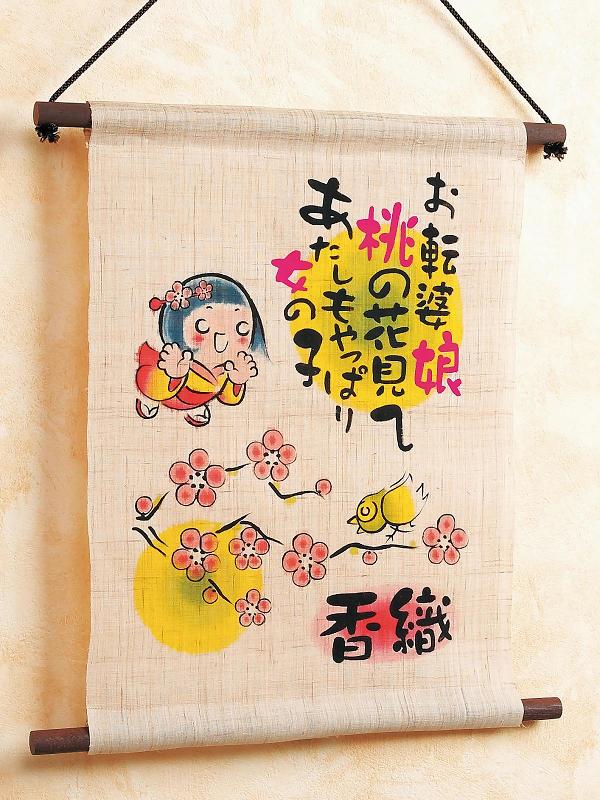 お転婆娘
桃の花見て
あたしもやっぱり
女の子
香織